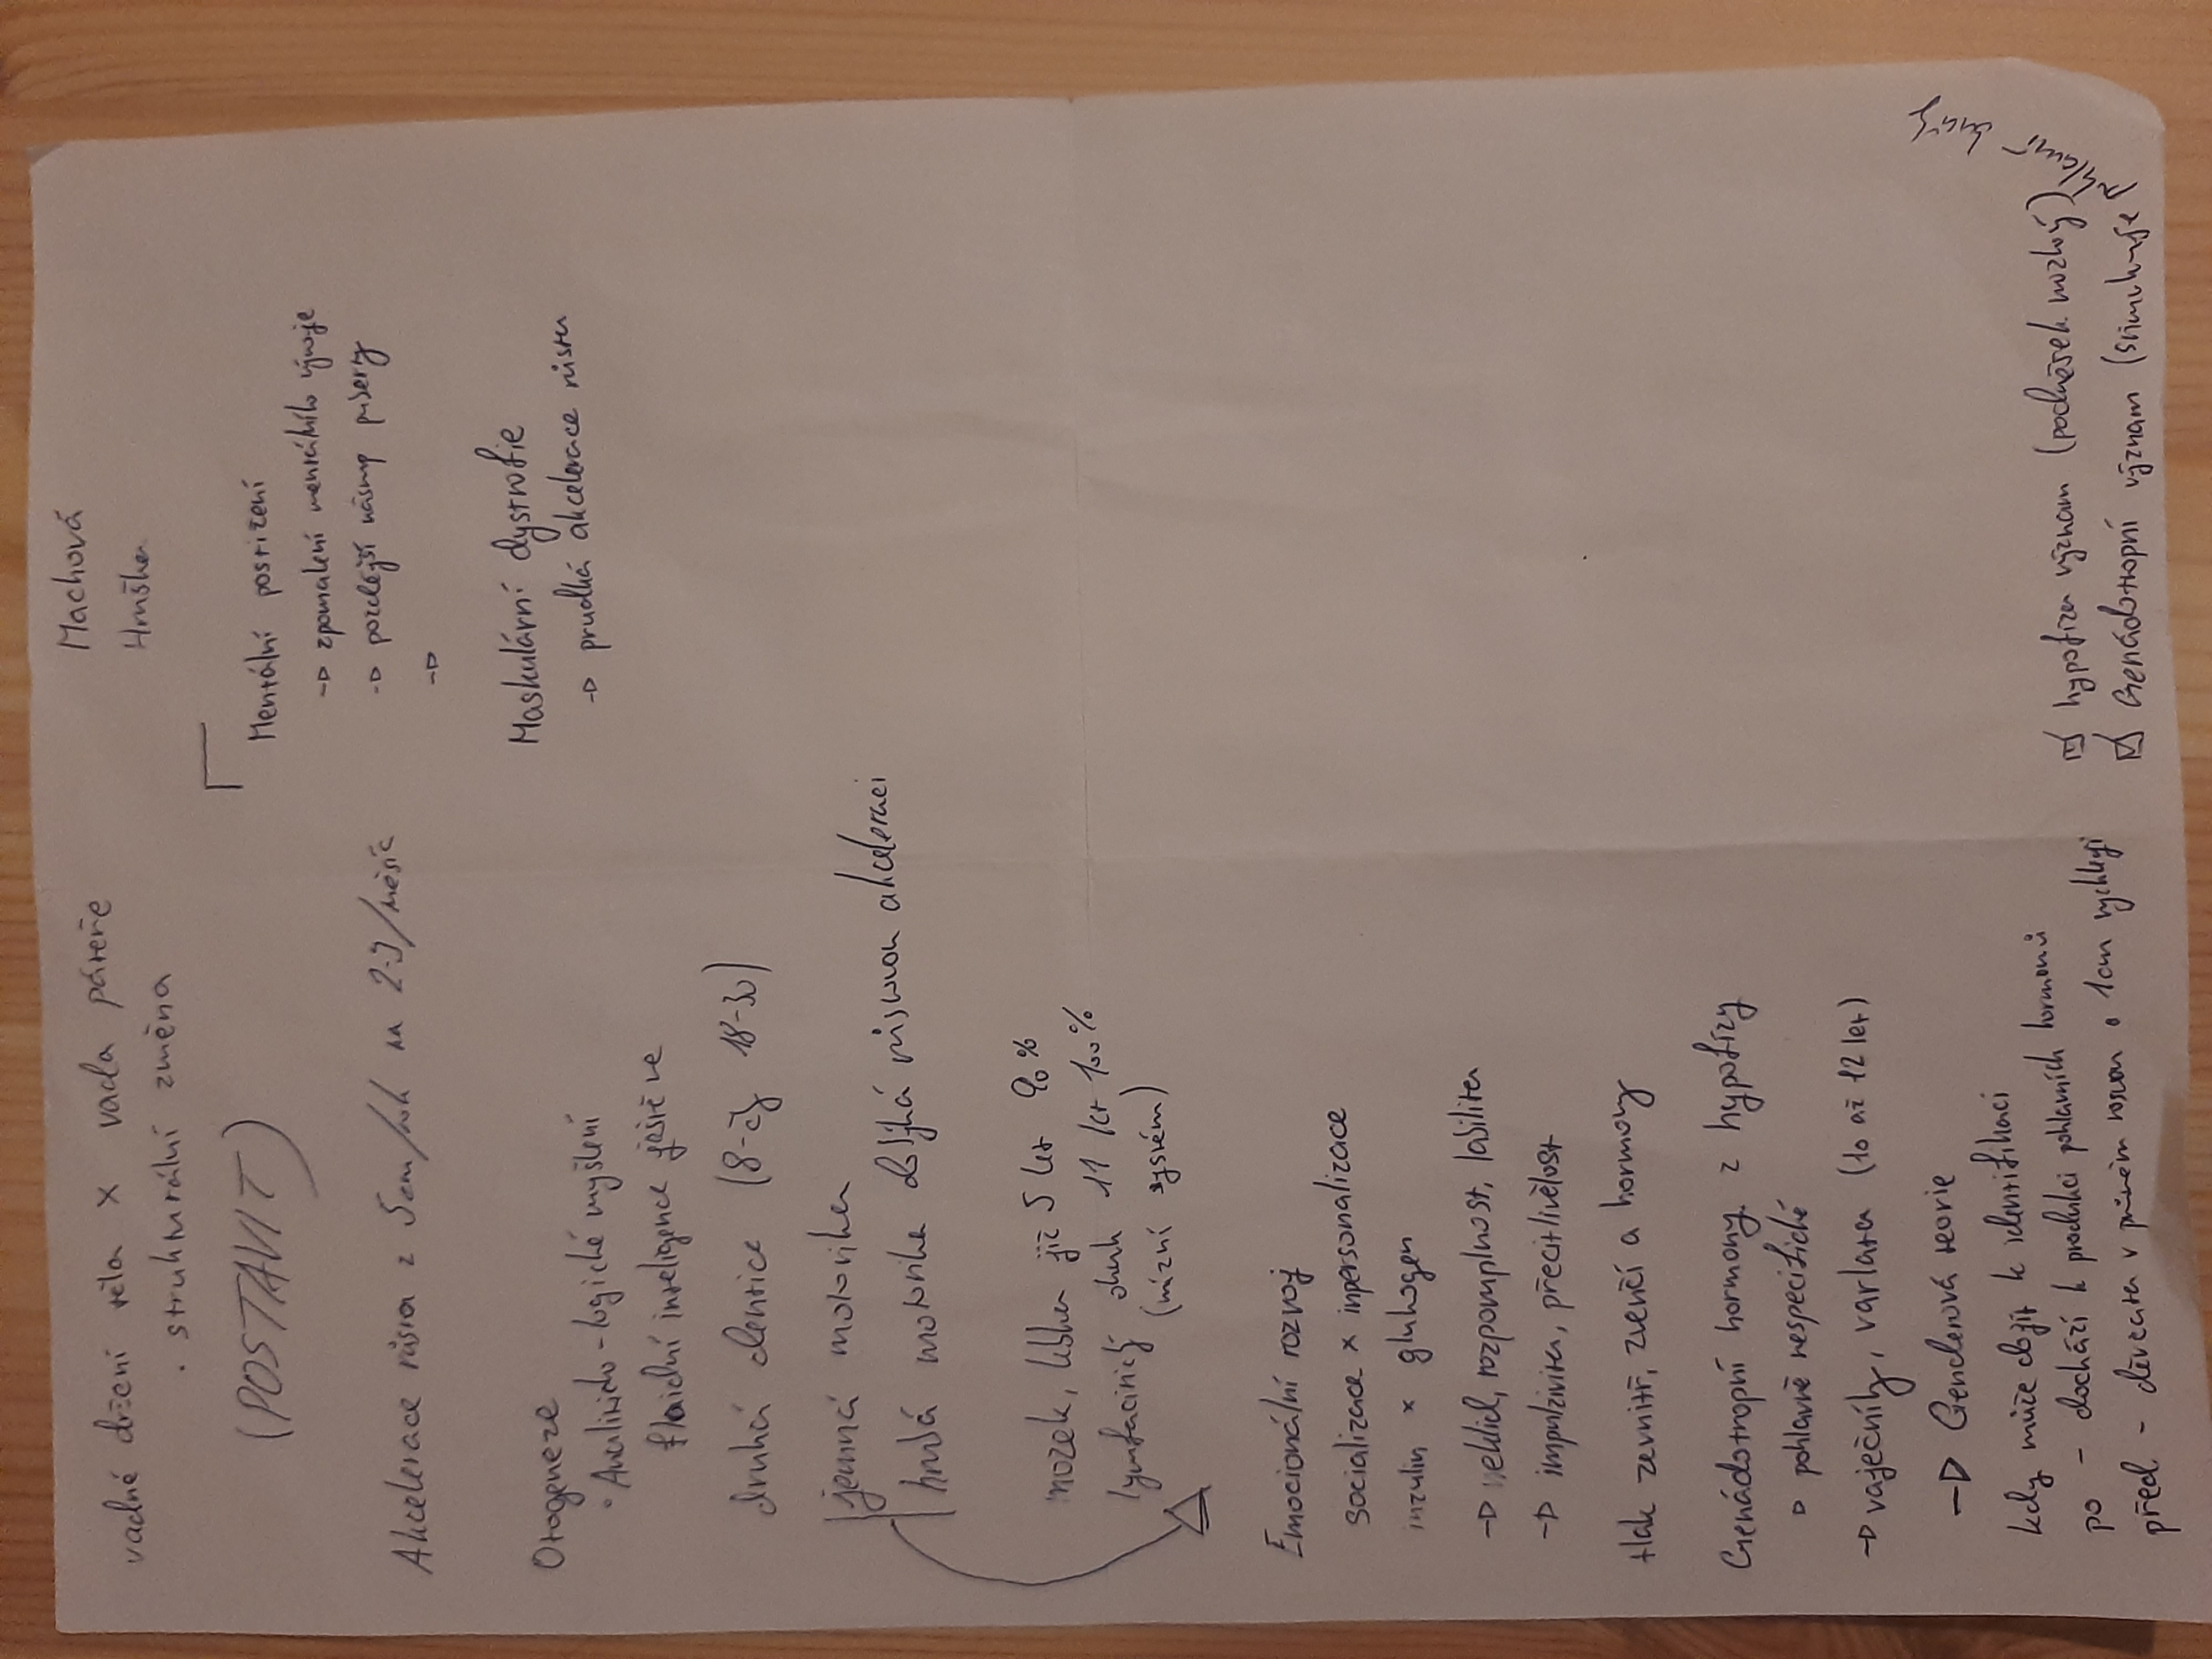 vadné držení těla x vada páteře
· strukturální změna
(POSTAVIT)
Akcelerace růstu z 5cm/rok na 2-3/měsíc
Otogeneze
· Analiticko-logické myšlení
fluidní inteligence ještě ne
druhá dentice (8-čy 18-30)
jemná motorika
hrubá motorika dobíhá růstovou akceleraci
mozek, lebka již 5 let 90%
lymfatický okruh 11 let 100%
(mízní systém)
Emocionální rozvoj
socializace x inpersonalizace
inzulin x glukogen
→ neklid, rozpomplnost, labilita
→ impulzivita, přecitlivělost
tlak zevnitř, zvenčí a hormony
Genádotropní hormony z hypofízy
→ pohlavně nespecifické
→ vaječníky, varlata (10 až 12 let)
→ Genderová teorie
kdy může dojít k identifikaci
po - dochází k produkci pohlavních hormonů
před. - děvčata v průměru rostou o 1cm rychleji
Machová
Hruška
Mentální postižení
→ zpomalení mentálního vývoje
→ pozdější nástup puberty
→
Maskulární dystrofie
→ prudká akcelerace růstu
☑ hypofíza význam (podvěsek mozkový)
☑ Genádotropní význam (stimuluje
pohlavní
žlázy